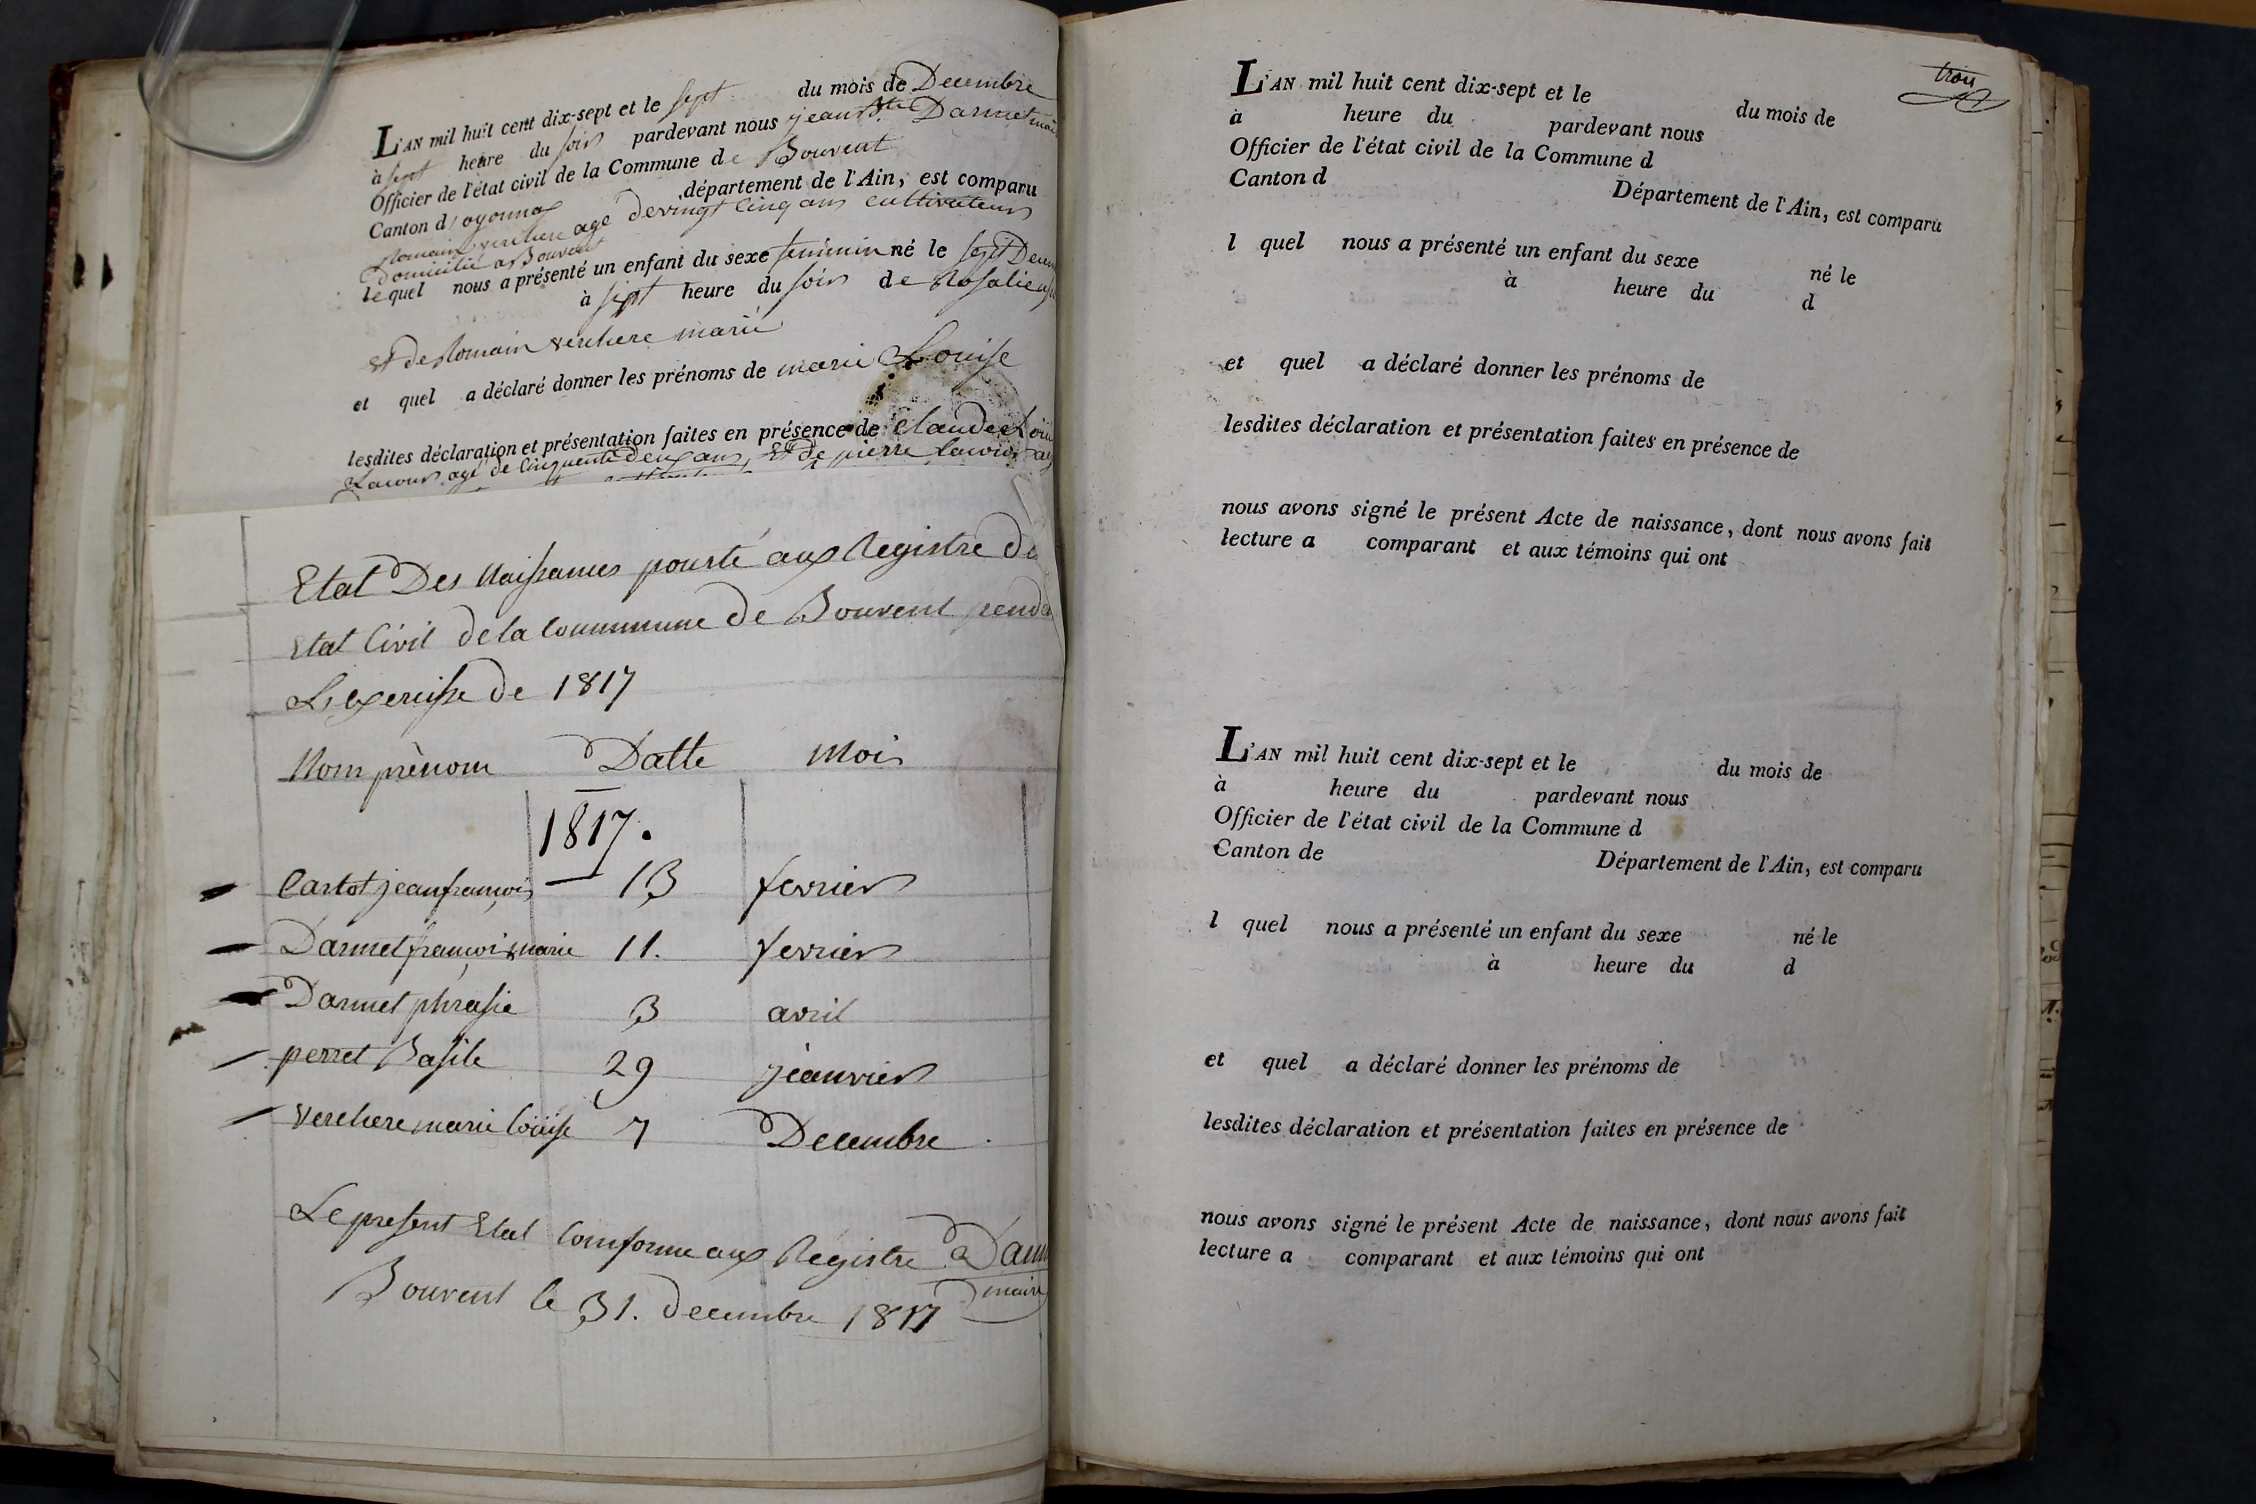 L'AN mil huit cent dix-sept et le sept du mois de Decembre
à sept heure du soir pardevant nous jean Bte Darmet
Officier de l'état civil de la Commune de Bouvent
Canton d'oyonnax département de l'Ain, est comparu
Romain verchere agé de vingt Cinq ans cultivateur
Domicilié a Bouvent
lequel nous a présenté un enfant du sexe feminin né le sept
à sept heure du soir de Rosalie
et de Romain verchere marié
et quel a déclaré donner les prénoms de marie Louise
lesdites déclaration et présentation faites en présence de Claude
Lacour agé de Cinquante Deux ans, Et de pierre
Etat Des Naissances pourté aux Registre de
Etat Civil de la Commune de Bouvent
L'exercisse de 1817
Nom prènom Datte Mois
1817.
Carlot jean françois — 13 fevrier
Darmet françois marie 11. fevrier
Darmet phrasie 3 avril
perret Basile 29 jeanvier
Verchere marie Louise 7 Decembre
Le present Etat Comforme aux Régistre
maire
Bouvent le 31. decembre 1817
trois
L'AN mil huit cent dix-sept et le du mois de
à heure du pardevant nous
Officier de l'état civil de la Commune d
Canton d Département de l'Ain, est comparu
l quel nous a présenté un enfant du sexe né le
à heure du d
et quel a déclaré donner les prénoms de
lesdites déclaration et présentation faites en présence de
nous avons signé le présent Acte de naissance, dont nous avons fait
lecture a comparant et aux témoins qui ont
L'AN mil huit cent dix-sept et le du mois de
à heure du pardevant nous
Officier de l'état civil de la Commune d
Canton de Département de l'Ain, est comparu
l quel nous a présenté un enfant du sexe né le
à heure du d
et quel a déclaré donner les prénoms de
lesdites déclaration et présentation faites en présence de
nous avons signé le présent Acte de naissance, dont nous avons fait
lecture a comparant et aux témoins qui ont